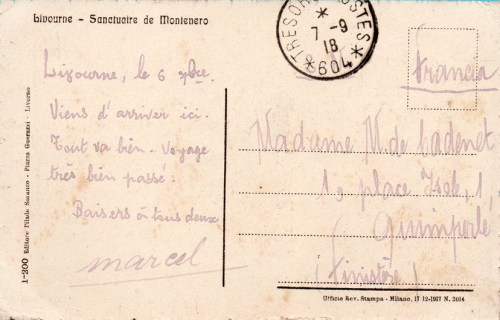 Livourne - Sanctuaire de Montenero
TRESOR ET POSTES
*
7 - 9
18
*604*
Livourne, le 6 7bre
Viens d'arriver ici.
Tout va bien. Voyage
très bien passé.
Baisers à tous deux
marcel
Francia
Madame M. de Cadenet
1, place Isole, 1
Quimperlé
(Finistère)
1-200 Editore Filiale Suzanno - Piazza Guerrazzi - Livorno
Ufficio Rev. Stampa - Milano, 17 12-1917 N. 3104